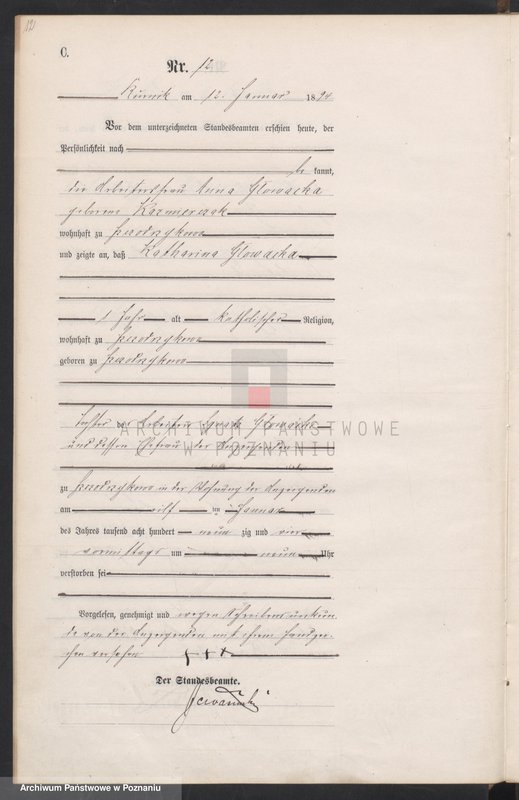 121
C.
Nr. 12
Kurnik am 12. Januar 1894
Vor dem unterzeichneten Standesbeamten erschien heute, der
Persönlichkeit nach
be kannt,
die Arbeiterfrau Anna Glowacka
geborene Kazmierczak
wohnhaft zu
und zeigte an, daß Katharina Glowacka
1 Jahr alt katholischer Religion,
wohnhaft zu
geboren zu
Tochter des Arbeiters Glowacki
und dessen Ehefrau der Anzeigenden
ARCHIWUM PAŃSTWOWE
W POZNANIU
zu in der Wohnung der Anzeigenden
am elf ten Januar
des Jahres tausend acht hundert neun zig und vier
vormittags um neun Uhr
verstorben sei
Vorgelesen, genehmigt und wegen Schreibensunkun
de von der Anzeigenden mit ihrem Handzei
chen versehen +++
Der Standesbeamte.
Archiwum Państwowe w Poznaniu